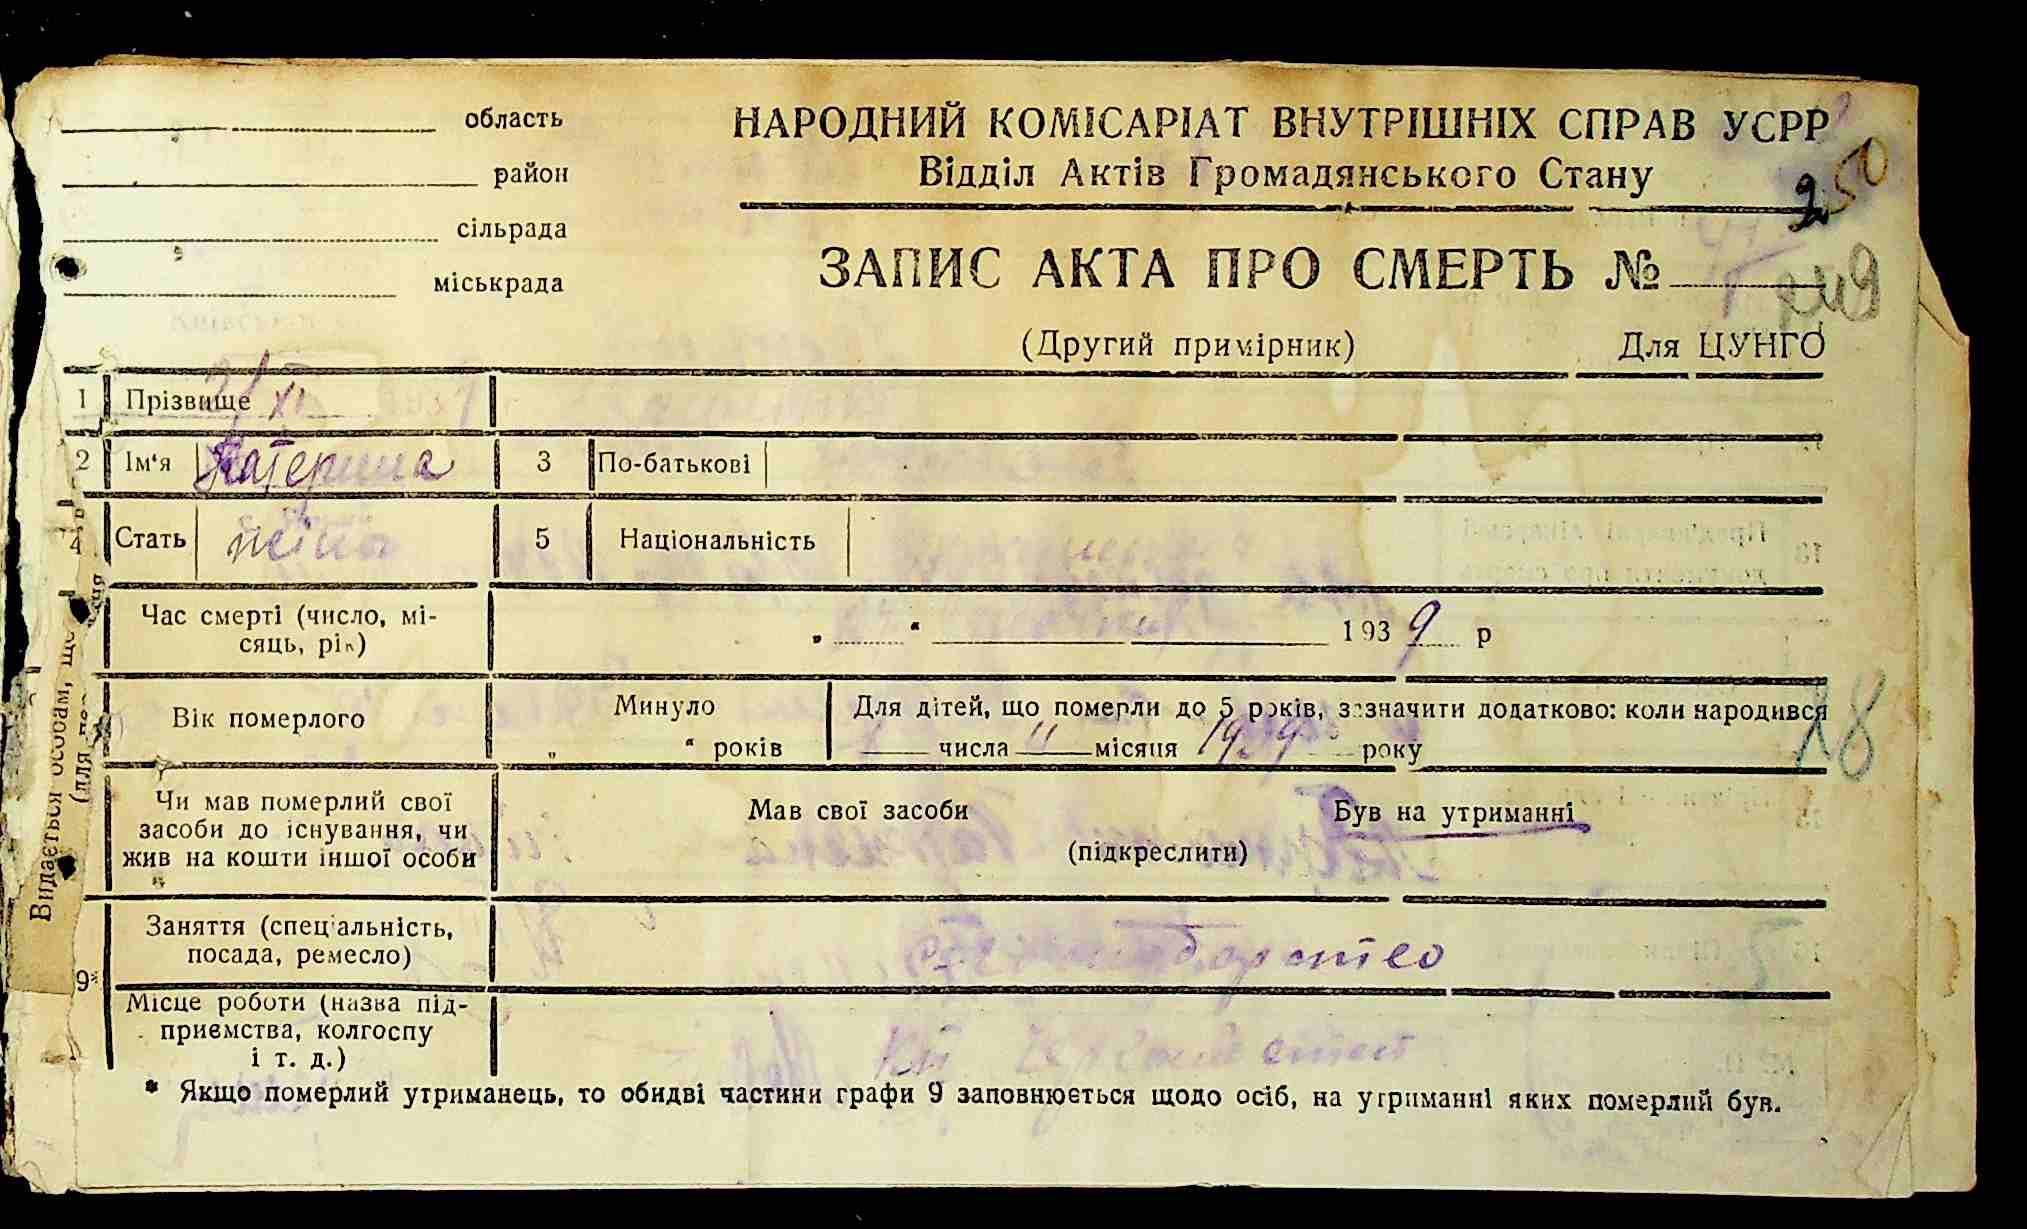 область
НАРОДНИЙ КОМІСАРІАТ ВНУТРІШНІХ СПРАВ УСРР
район
Відділ Актів Громадянського Стану
250
сільрада
міськрада
ЗАПИС АКТА ПРО СМЕРТЬ №
249
(Другий примірник)
Для ЦУНГО
1 Прізвище
XI
2 Ім'я Катерина 3 По-батькові
4 Стать жіноч 5 Національність
Час смерті (число, мі-
сяць, рік)
„ “ 1939 р
Вік померлого
Минуло
„ “ років
Для дітей, що померли до 5 років, зазначити додатково: коли народився
числа 11 місяця 1939 року
28
Чи мав померлий свої
засоби до існування, чи
жив на кошти іншої особи
Мав свої засоби
Був на утриманні
(підкреслити)
9*
Заняття (спеціальність,
посада, ремесло)
Місце роботи (назва під-
приємства, колгоспу
і т. д.)
* Якщо померлий утриманець, то обидві частини графи 9 заповнюється щодо осіб, на утриманні яких померлий був.
Видається особам, що
(для